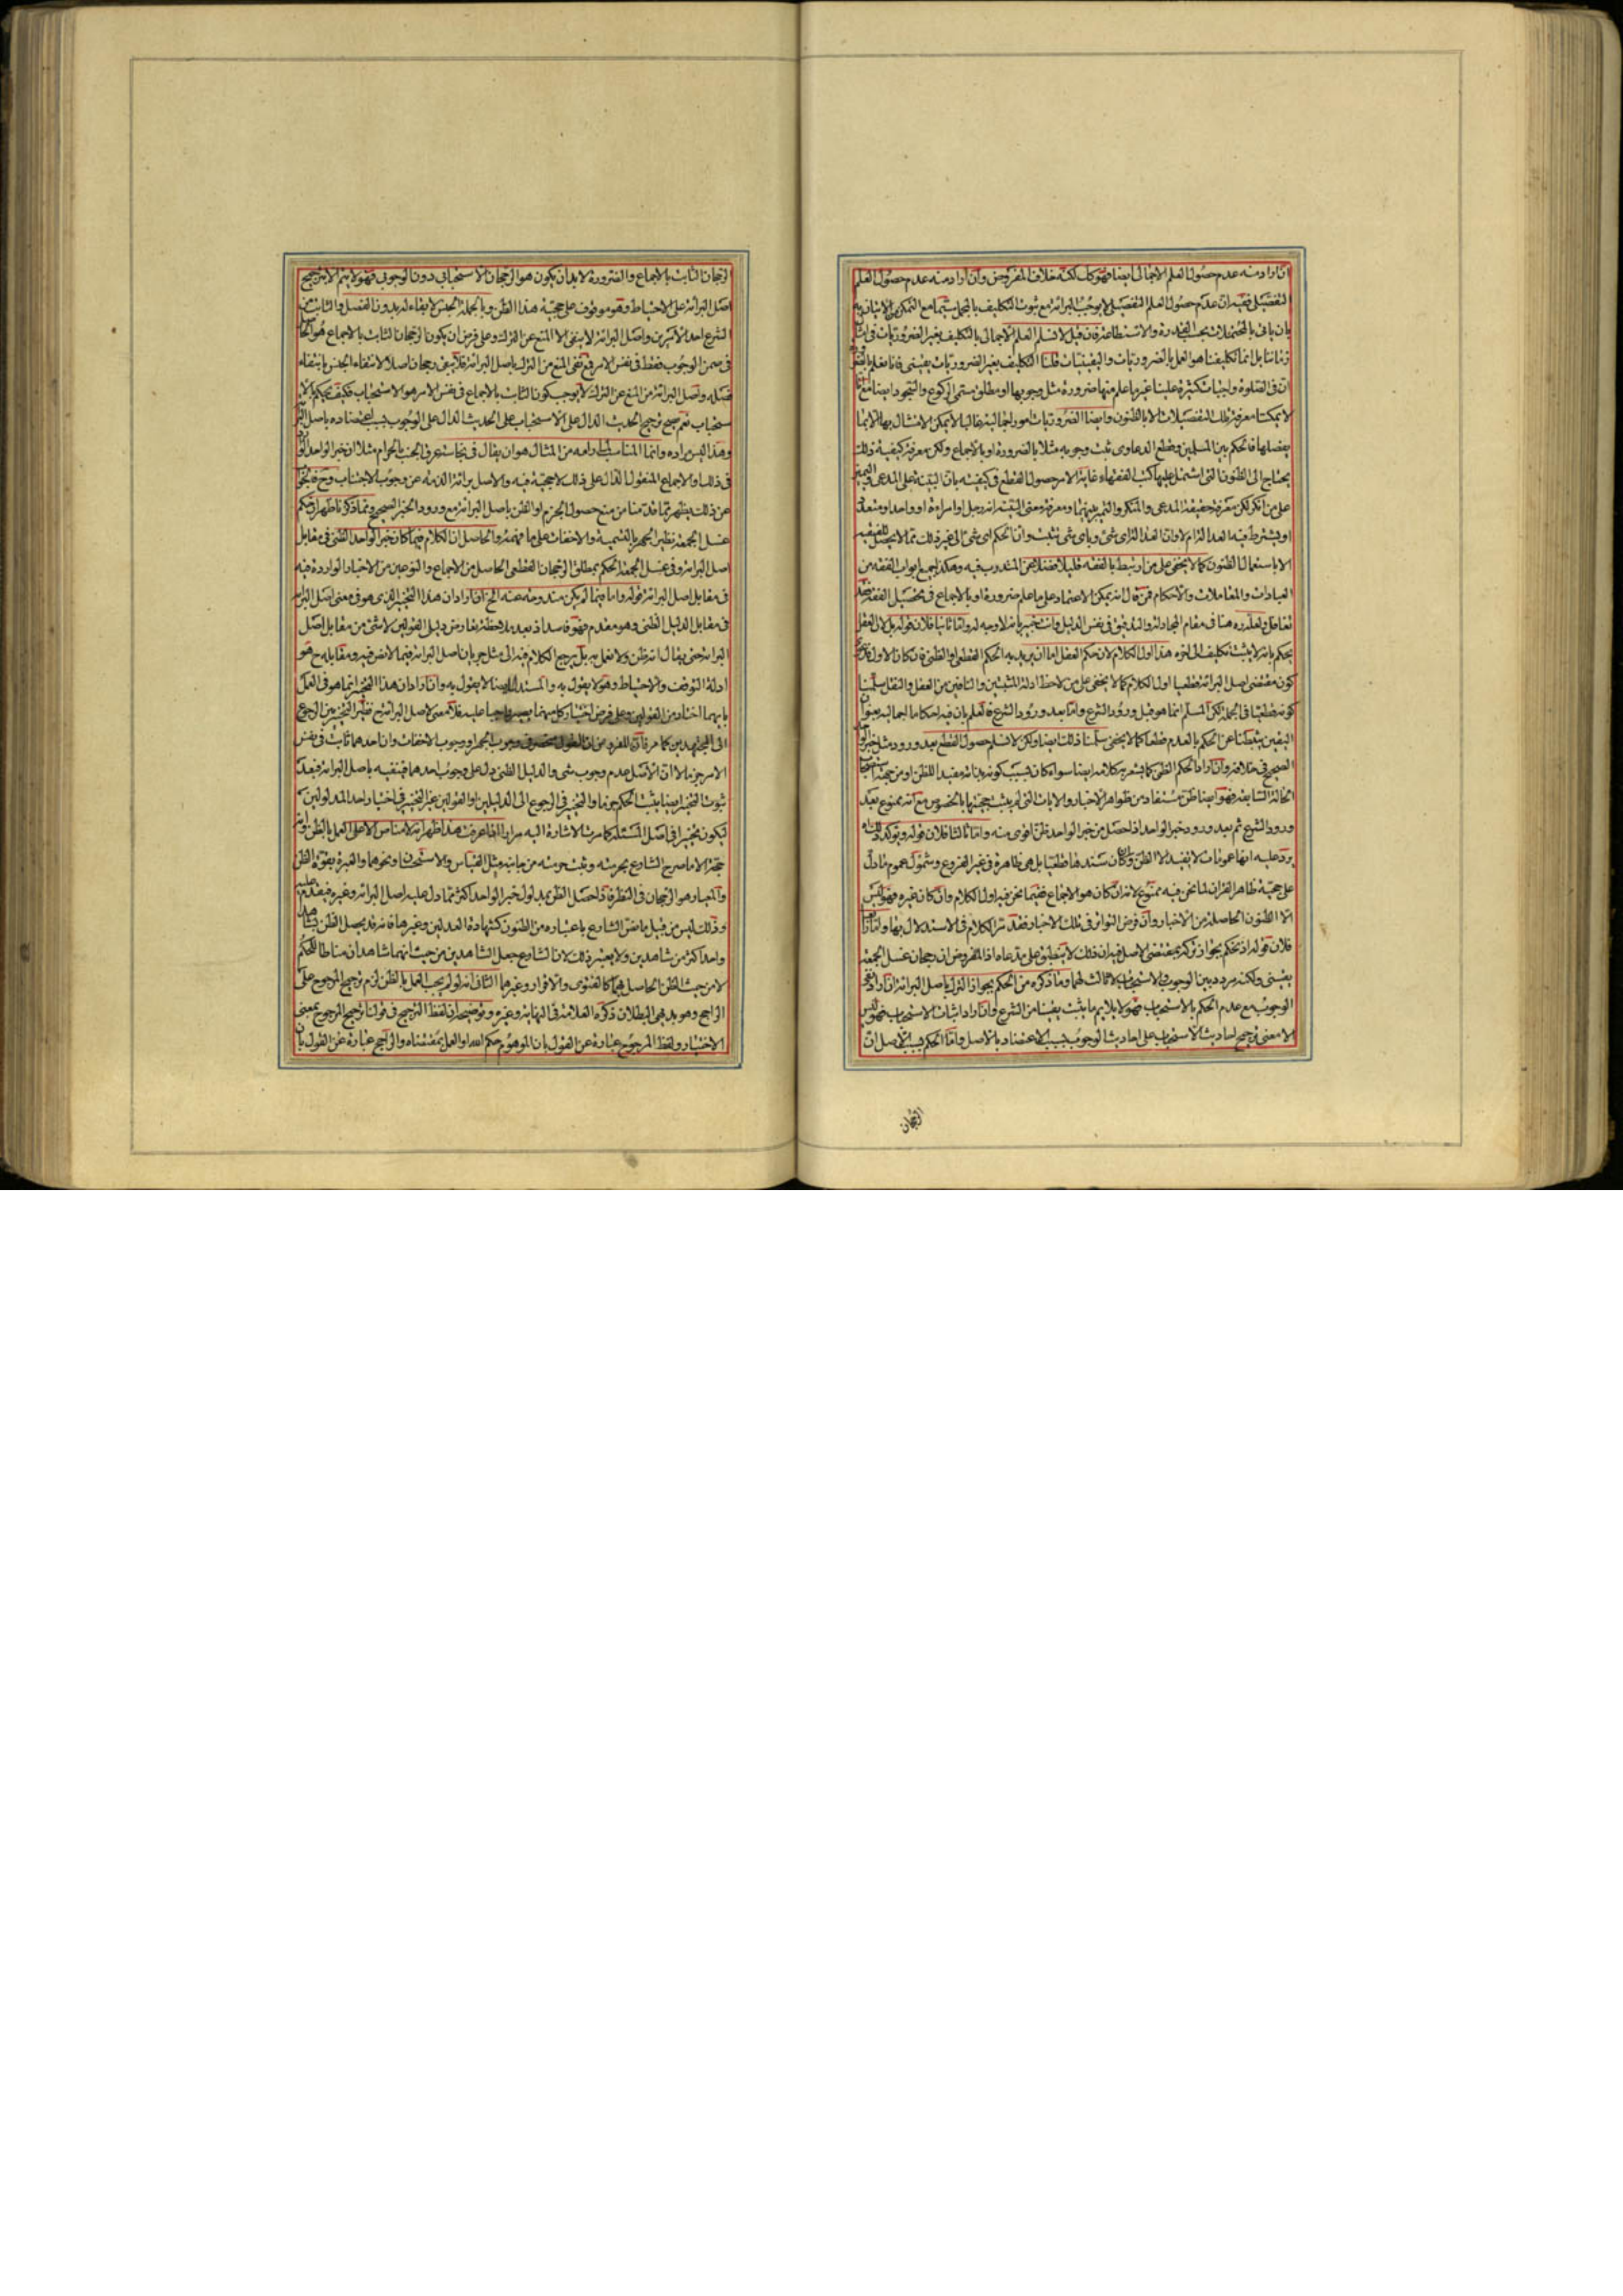 ان اراد منه عدم حصول العلم الاجمالى ايضا فهو كك لكنه خلاف المفروض وان اراد منه عدم حصول العلم
التفصيلى ففيه ان عدم حصول العلم التفصيلى لا يوجب البرائة مع ثبوت التكليف بالمجمل سيما مع التمكن من الاتيان به
بان ياتى بالمحتملات بحسب القدرة والاستطاعة فان قيل لا نسلم العلم الاجمالى بالتكليف بغير الضروريات فى امثال
زماننا بل انما تكليفنا هو العمل بالضروريات واليقينيات قلنا التكليف بغير الضروريات يقينى فانا نعلم بالضرورة
ان فى الصلوة واجبات كثيرة علينا غير ما علم منها ضرورة مثل وجوبها او مطلق مسمى الركوع والسجود ايضا مع انا
لا يمكننا معرفة تلك التفصيلات الا بالظنون وايضا الضروريات امور اجمالية غالبا لا يمكن الامتثال بها الا بما
يفصلها فالحكم بين المسلمين وقطع الدعاوى ثبت وجوبه مثلا بالضرورة او بالاجماع ولكن معرفة كيفية ذلك
يحتاج الى الظنون التى اشتمل عليها كتب الفقهاء غاية الامر حصول القطع فى كيفيته بان البينة على المدعى واليمين
على من انكر لكن معرفة حقيقة المدعى والمنكر والتميز بينهما ومعرفة معنى البينة انه رجل او امراءة او واحد او متعدد
او يشترط فيه العدالة ام لا وان العدالة اى شئ وباى شئ تثبت وان الحكم اى شئ الى غير ذلك مما لا يحصل للفقيه
الا باستعمال الظنون كما لا يخفى على من ارتبط بالفقه قليلا فضلا عمن المتدرب فيه وهكذا جميع ابواب الفقه من
العبادات والمعاملات والاحكام فمن قال انه يمكن الاعتماد على ما علم ضرورة او بالاجماع فى تحصيل الفقه فقد
تغافل ولعله هنا فى مقام المجادلة والتدقيق فى نفس الدليل وانت خبير بانه لا وجه له واما ثانيا فلان قوله بل لان العقل
يحكم بانه لا يثبت تكليف الى اخره هذا اول الكلام لان حكم العقل اما ان يريد به الحكم القطعى او الظنى فان كان الاول فدعوى
كون مقتضى اصل البرائة قطعيا اول الكلام كما لا يخفى على من لاحظ ادلة المثبتين والنافين من العقل والنقل سلمنا
كونه قطعيا فى الجملة لكن المسلم انما هو قبل ورود الشرع واما بعد ورود الشرع فالعلم بان فيه احكاما اجمالية بعنوان
اليقين يثبطنا عن الحكم بالعدم قطعا كما لا يخفى سلمنا ذلك ايضا ولكن لا نسلم حصول القطع بعد ورود مثل خبر الواحد
الصحيح فى خلافه وان اراد الحكم الظنى كما يشعر به كلامه ايضا سواء كان بسبب كونه بذاته مفيدا للظن او من جهة استصحاب
الحالة السابقة فهو ايضا ظن مستفاد من ظواهر الاخبار والايات التى لم يثبت حجيتها بالخصوص مع انه ممنوع بعد
ورود الشرع ثم بعد ورود خبر الواحد اذا حصل من خبر الواحد ظن اقوى منه واما ثالثا فلان قوله ويؤكد ذلك
يرد عليه انها عمومات لا يفيد الا الظن وان كان سندها قطعيا بل هى ظاهرة فى غير الفروع وشمول عموم ما دل
على حجية ظاهر القران لما نحن فيه ممنوع لانه ان كان هو الاجماع ففيما نحن فيه اول الكلام وان كان غيره فهو ليس
الا الظنون الحاصلة من الاخبار وان فرض التواتر فى تلك الاخبار فقد مر الكلام فى الاستدلال بها واما رابعا
فلان قوله اذ نحكم بجواز تركه بمقتضى الاصل فيه ان ذلك لا ينطبق على مدعاه اذ المفروض ان رجحان غسل الجمعة
يقينى ولكنه مردد بين الوجوب والاستحباب لا ثالث لهما وما ذكره من الحكم بجواز الترك باصل البرائة ان اراد نفى
الوجوب مع عدم الحكم بالاستحباب فهو لا يلايم ما يثبت يقينا من الشرع وان اراد اثبات الاستحباب فهو ليس
الا معنى ترجيح احاديث الاستحباب على احاديث الوجوب بسبب الاعتضاد بالاصل واما الحكم بسبب الاصل ان
الرجحان
الرجحان الثابت بالاجماع والضرورة لا بد ان يكون هو الرجحان الاستحبابى دون الوجوبى فهو لا يتم الا بترجيح
اصل البرائة على الاحتياط وهو موقوف على حجية هذا الظن وبالجملة الجنس لا بقاء له بدون الفصل والثابت من
الشرع احد الامرين واصل البرائة لا ينفى الا المنع عن الترك وعلى فرض ان يكون الرجحان الثابت بالاجماع هو الحاصل
فى ضمن الوجوب فقط فى نفس الامر فمع نفى المنع من الترك باصل البرائة فلا يبقى رجحان اصلا لانتفاء الجنس بانتفاء
فصله واصل البرائة من المنع عن الترك لا يوجب كون الثابت بالاجماع فى نفس الامر هو الاستحباب فكيف يحكم بالا
ستحباب نعم صح ترجيح الحديث الدال على الاستحباب على الحديث الدال على الوجوب بسبب اعتضاده باصل البرائة
وهذا ليس مراده وانما المناسب لما رامه من المثال هو ان يقال فى نجاسة عرق الجنب بالحرام مثلا ان خبر الواحد الوارد
فى ذلك او الاجماع المنقول الدال على ذلك لا حجية فيه والاصل برائة الذمة عن وجوب الاجتناب وح فالجواب
عن ذلك يظهر مما قدمنا من منع حصول الجزم او الظن باصل البرائة مع ورود الخبر الصحيح ومما ذكرنا ظهر ان حكم
غسل الجمعة نظير الجهر بالتسمية والاخفات على ما فهمه والحاصل ان الكلام فيما كان خبر الواحد الظنى فى مقابل
اصل البرائة وفى غسل الجمعة الحكم بمطلق الرجحان القطعى الحاصل من الاجماع والنوعين من الاخبار الواردة فيه
فى مقابل اصل البرائة قوله واما فيما لم يكن مندوحة عنه الخ ان اراد ان هذا التخيير الذى هو فى معنى اصل البرائة
فى مقابل الدليل الظنى وهو مقدم فهو فاسد اذ بعد ملاحظة تعارض دليل القولين لا شئ من مقابل اصل
البرائة حتى يقال انه ظن ولا نعمل به بل يرجع الكلام فيه الى مثل جريان اصل البرائة فيما لا نص فيه ومقابله ح هو
ادلة التوقف والاحتياط وهو لا يقول به والمستدل ايضا لا يقول به وان اراد ان هذا التخيير انما هو فى العمل
بايهما اختار من القولين وعلى فرض اختيار كل منهما يصير واجبا عليه فلا معنى لاصل البرائة ح نظير التخيير بين الرجوع
الى المجتهدين كما مر فان المفروض ان القول منحصر فى وجوب الجهر او وجوب الاخفات وان احدهما ثابت فى نفس
الامر جزما لا ان الاصل عدم وجوب شئ والدليل الظنى دل على وجوب احدهما فينفيه باصل البرائة فبعد
ثبوت التخيير ايضا يثبت الحكم جزما والتخيير فى الرجوع الى الدليلين او القولين غير التخيير فى اختيار احد المدلولين
ليكون تخييرا فى اصل المسئلة كما مرت الاشارة اليه مرارا اذا عرفت هذا ظهر انه لا مناص الا على العمل بالظن وانه
حجة الا ما صرح الشارع بحرمته وثبت حرمته من جانبه مثل القياس والاستحسان ونحوهما والعبرة بقوة الظن
والمعيار هو الرجحان فى النظر فاذا حصل الظن بمدلول خبر الواحد اكثر مما دل عليه اصل البرائة وغيره فيقدم عليه
وذلك ليس من قبيل ما نص الشارع باعتباره من الظنون كشهادة العدلين وغيرها فانه قد يحصل الظن بشاهد
واحد اكثر من شاهدين ولا يعتبر ذلك لان الشارع جعل الشاهدين من حيث انهما شاهدان مناطا للحكم
لا من حيث الظن الحاصل بهما كالفتوى والاقرار وغيرهما الثانى انه لو لم يجب العمل بالظن لزم ترجيح المرجوح على
الراجح وهو بديهى البطلان ذكره العلامة فى النهاية وغيره وتوضيحه ان لفظ الترجيح فى قولنا ترجيح المرجوح بمعنى
الاختيار ولفظ المرجوح عبارة عن القول بان الموهوم حكم الله او العمل بمقتضاه والراجح عبارة عن القول بان